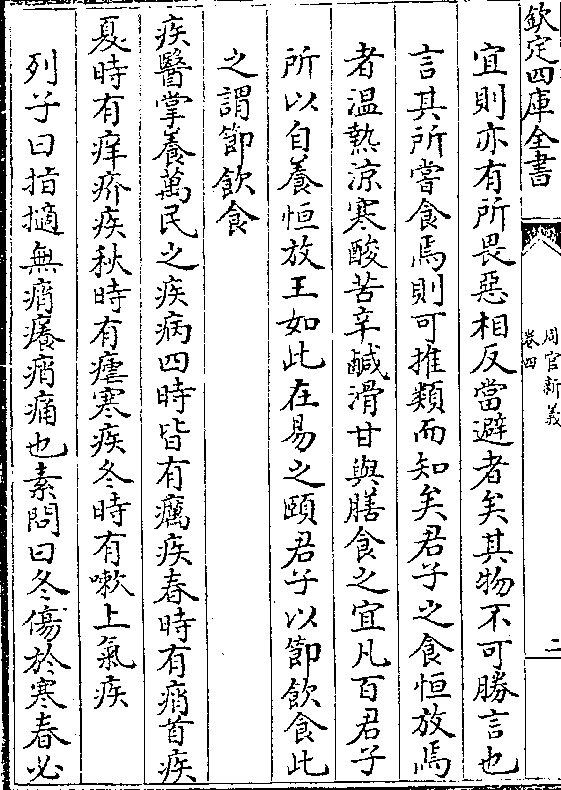 欽定四庫全書
周官新義
卷四
二
宜則亦有所畏惡相反當避者矣其物不可勝言也
言其所嘗食焉則可推類而知矣君子之食恒放焉
者溫熱涼寒酸苦辛鹹滑甘與膳食之宜凡百君子
所以自養恒放王如此在易之頤君子以節飲食此
之謂節飲食
疾醫掌養萬民之疾病四時皆有癘疾春時有痟首疾
夏時有痒疥疾秋時有瘧寒疾冬時有嗽上氣疾
列子曰指擿無痟癢痟痛也素問曰冬傷於寒春必